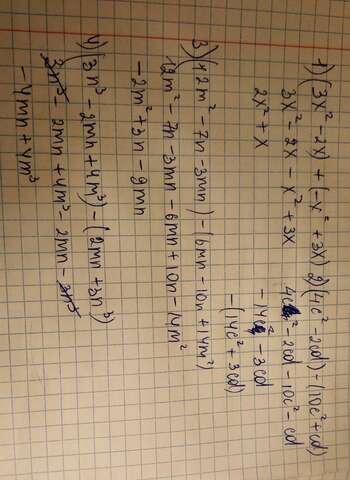 1) (3x² - 2x) + (-x² + 3x)
3x² - 2x - x² + 3x
2x² + x
2) (4c² - 2cd) - (10c² + cd)
4c² - 2cd - 10c² - cd
-14c² - 3cd
-(14c² + 3cd)
3) (12m² - 7n - 3mn) - (6mn - 10n + 14m²)
12m² - 7n - 3mn - 6mn + 10n - 14m²
-2m² + 3n - 9mn
4) (3n³ - 2mn + 4m³) - (2mn + 3n³)
3n³ - 2mn + 4m³ - 2mn - 3n³
-4mn + 4m³